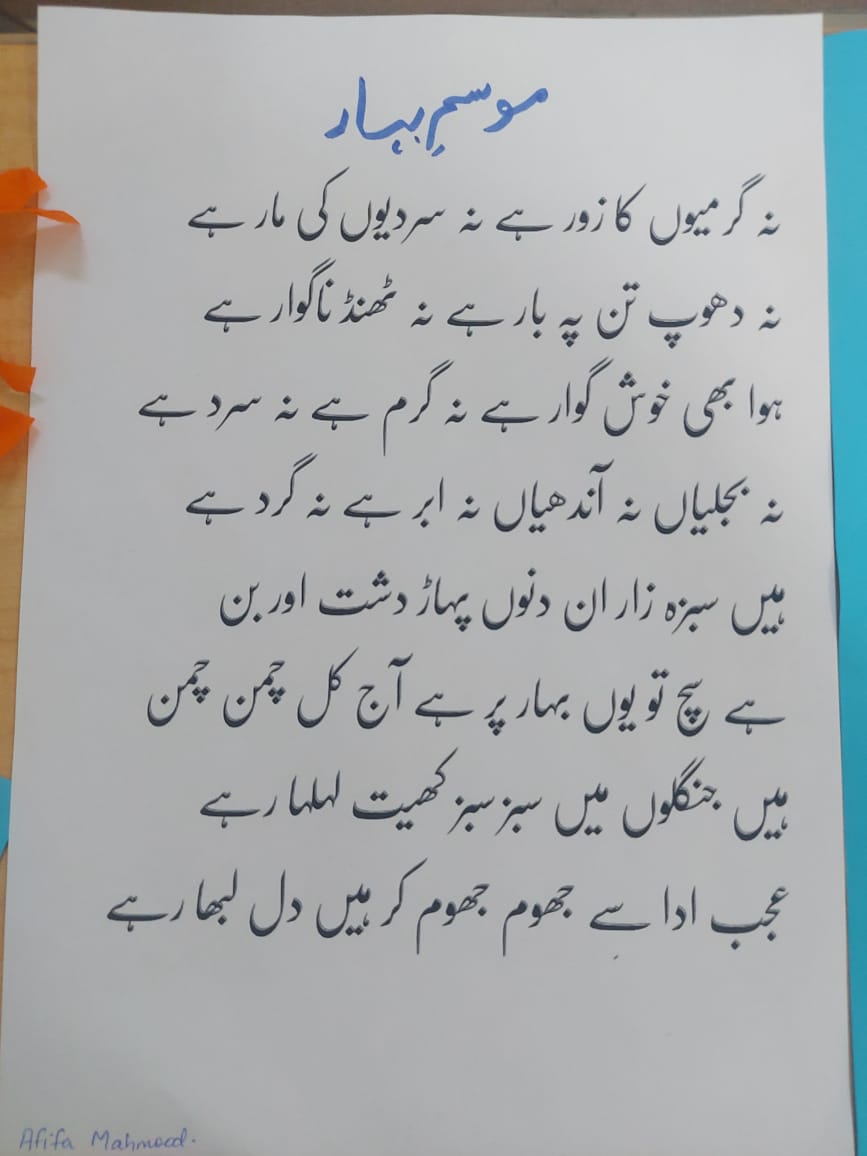 موسمِ بہار
نہ گرمیوں کا زور ہے نہ سردیوں کی مار ہے
نہ دھوپ تن پہ بار ہے نہ ٹھنڈ ناگوار ہے
ہوا بھی خوش گوار ہے نہ گرم ہے نہ سرد ہے
نہ بجلیاں نہ آندھیاں نہ ابر ہے نہ گرد ہے
ہیں سبزہ زار ان دنوں پہاڑ دشت اور بن
ہے سچ تو یوں بہار پر ہے آج کل چمن چمن
ہیں جنگلوں میں سبز سبز کھیت لہلہا رہے
عجب ادا سے جھوم جھوم کر ہیں دل لبھا رہے
Afifa Mahmood.